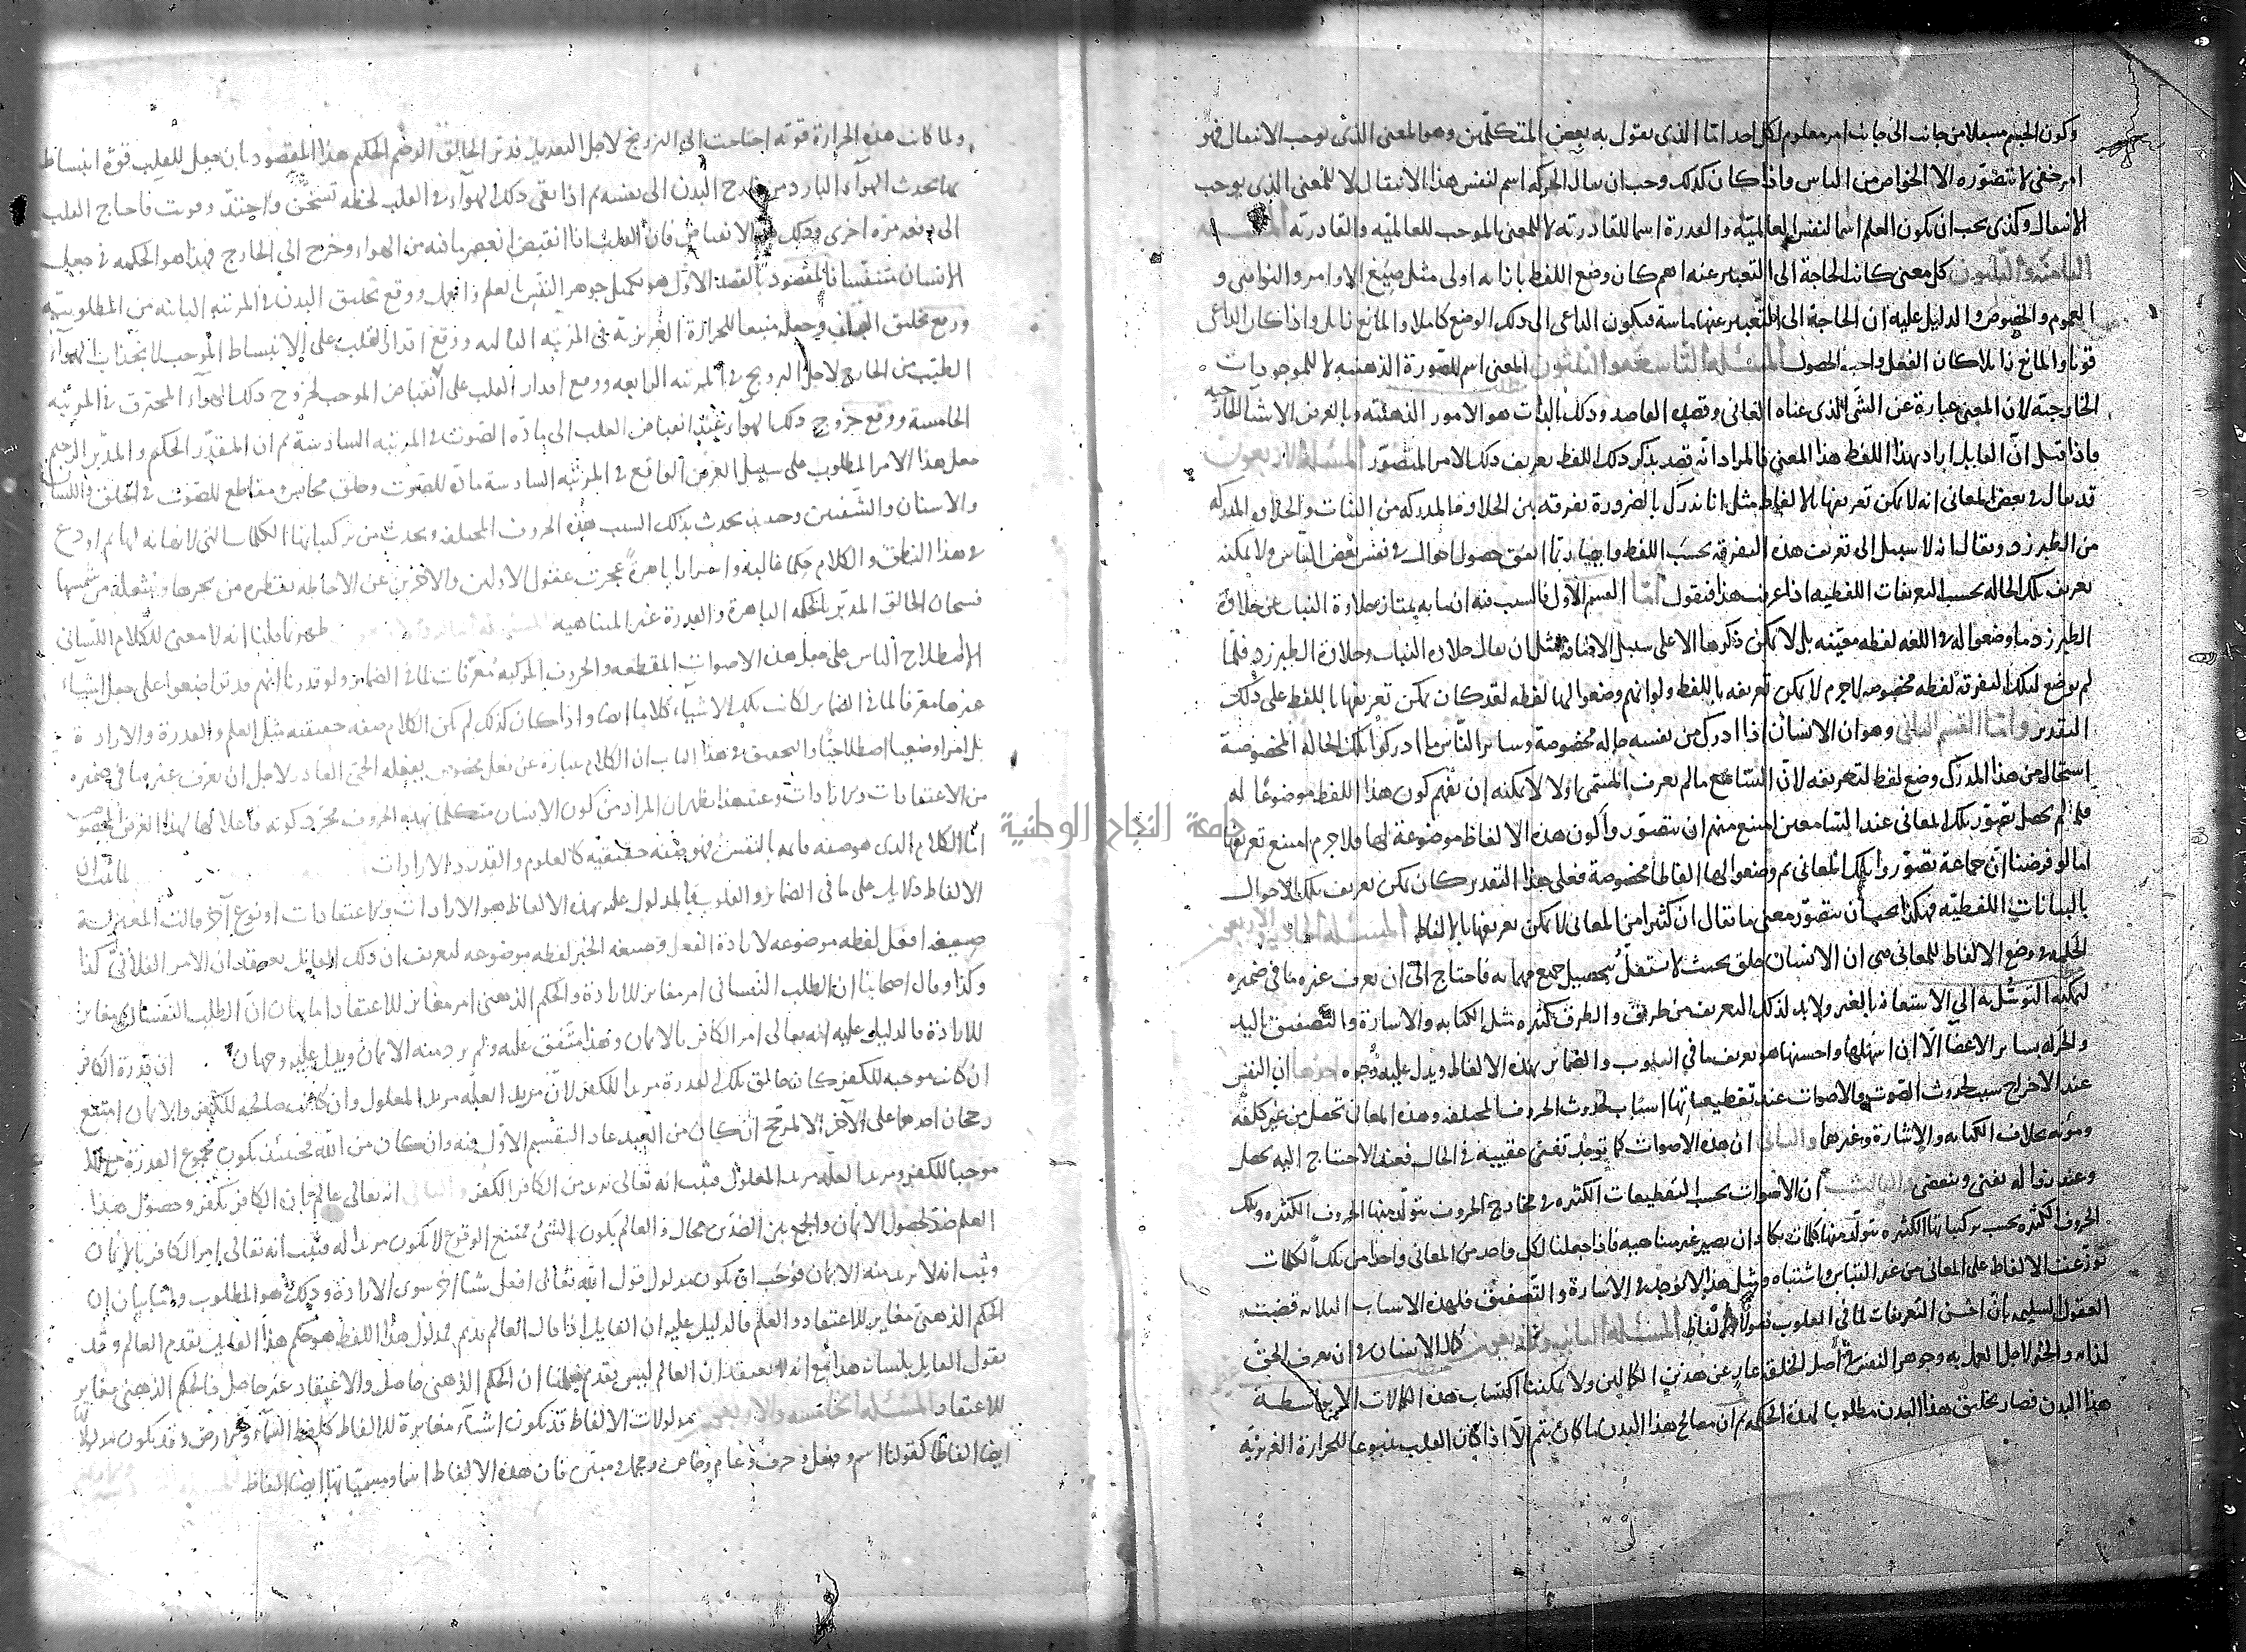 وكون الجسم منتقلا من جانب الى جانب امر معلوم لكل احد اما الذى يقول به بعض المتكلمين وهو المعنى الذى يوجب الانتقال فهو
امر خفى لا يتصوره الا الخواص من الناس واذا كان كذلك وجب ان يقال الحركة اسم لنفس هذا الانتقال لا للمعنى الذى يوجب
الانتقال وكذى يجب ان يكون العلم اسما لنفس العالمية والقدرة اسما للقادرية لا للمعنى الموجب للعالمية والقادرية
الثامنة والثلثون كل معنى كانت الحاجة الى التعبير عنه اهم كان وضع اللفظ بازائه اولى مثل صيغ الاوامر والنواهى و
العموم والخصوص والدليل عليه ان الحاجة الى التعبير عنها ماسة فيكون الداعى الى ذلك الوضع كاملا والمانع زائلا واذا كان الداعى
قويا والمانع زايلا كان الفعل واجب الحصول المسئلة التاسعة والثلثون المعنى اسم للصورة الذهنيه لا للموجودات
الخارجية لان المعنى عبارة عن الشى الذى عناه العانى وقصده القاصد وذلك بالذات هو الامور الذهنية وبالعرض الاشيا الخارجيه
فاذا قيل ان القايل اراد بهذا اللفظ هذا المعنى فالمراد انه قصد بذكر ذلك اللفظ تعريف ذلك الامر المتصور المسئلة الاربعون
قد يقال فى بعض المعانى انه لا يمكن تعريفها بالالفاظ مثل انا ندرك بالضرورة تفرقة بين الحلاوة المدركة من النبات والحلاوة المدركه
من الطبرزد ويقال انه لا سبيل الى تعريف هذه التفرقه بحسب اللفظ وايضا ربما اتفق حصول احوال فى نفس بعض الناس ولا يمكنه
تعريف تلك الحاله بحسب التعريفات اللفظيه اذا عرفت هذا فنقول اما القسم الاول فالسبب فيه ان ما به يمتاز حلاوة النبات عن حلاوة
الطبرزد ما وضعوا له فى اللغه لفظه معينه بل لا يمكن ذكرها الا على سبيل الاضافه مثل ان يقال حلاوة النبات وحلاوة الطبرزد فلما
لم يوضع لتلك التفرقة لفظه مخصوصه لا جرم لا يمكن تعريفه باللفظ ولو انهم وضعوا لها لفظه لقد كان يمكن تعريفها باللفظ على ذلك
التقدير واما القسم الثانى وهو ان الانسان اذا ادرك من نفسه حاله مخصوصة وساير الناس ما ادركوا تلك الحالة المخصوصة
استحال من هذا المدرك وضع لفظ لتعريفه لان السامع ما لم يعرف المسمى اولا لا يمكنه ان يفهم كون هذا اللفظ موضوعا له
فلما لم يحصل تصور تلك المعانى عند السامعين امتنع منهم ان يتصوروا كون هذه الالفاظ موضوعة لها فلا جرم امتنع تعريفها
اما لو فرضنا ان جماعة تصوروا تلك المعانى ثم وضعوا لها الفاظا مخصوصة فعلى هذا التقدير كان يمكن تعريف تلك الاحوال
بالبيانات اللفظيه فهكذا يجب ان يتصور معنى ما يقال ان كثيرا من المعانى لا يمكن تعريفها بالالفاظ المسئلة الحادية والاربعون
الحكمه فى وضع الالفاظ للمعانى هى ان الانسان خلق بحيث لا يستقل بتحصيل جميع مهماته فاحتاج الى ان يعرف غيره ما فى ضميره
ليمكنه التوسل به الى الاستعانة بالغير ولا بد لذلك التعريف من طريق والطرق كثيره مثل الكتابه والاشارة والتصفيق باليد
والحركه بساير الاعضا الا ان اسهلها واحسنها هو تعريف ما فى القلوب والضماير بهذه الالفاظ ويدل عليه وجوه احدها ان النفس
عند الاخراج سبب لحدوث الصوت والاصوات عند تقطيعاتها اسباب لحدوث الحروف المختلفه وهذه المعانى تحصل من غير كلفه
ومونه بخلاف الكتابه والاشارة وغيرها والثانى ان هذه الاصوات كما توجد تفنى عقيبه فى الحال فعند الاحتياج اليه يحصل
وعند زواله يفنى وينقضى الثالث ان الاصوات بحسب التقطيعات الكثيره فى مخارج الحروف يتولد منها الحروف الكثيره وتلك
الحروف الكثيره بحسب تركيباتها الكثيره يتولد منها كلمات تكاد ان يصير غير متناهيه فاذا جعلنا لكل واحد من المعانى واحدا من تلك الكلمات
توزعت الالفاظ على المعانى من غير التباس واشتباه ومثل هذا لا يوجد فى الاشارة والتصفيق فلهذه الاسباب الثلاثه قضت
العقول السليمه بان احسن التعريفات لما فى القلوب هو الالفاظ المسئلة الثانيه والاربعون كمال الانسان فى ان يعرف الحق
لذاته والخير لاجل العمل به وجوهر النفس فى اصل الخلقة عار عن هذين الكمالين ولا يمكنها اكتساب هذه الكمالات الا بواسطة
هذا البدن فصار تخليق هذا البدن مطلوبا لهذه الحكمه ثم ان مصالح هذا البدن ما كان يتم الا اذا كان القلب ينبوعا للحرارة الغريزيه
ولما كانت هذه الحرارة قويه احتاجت الى الترويح لاجل التعديل فدبر الخالق الرحيم الحكيم هذا المقصود بان جعل للقلب قوة انبساط
بها يجذب الهواء البارد من خارج البدن الى نفسه ثم اذا بقى ذلك الهواء فى القلب لحظه تسخن واحتد وقويت فاحتاج القلب
الى دفعه مرة اخرى وذلك هو الانقباض فان القلب اذا انقبض انعصر ما فيه من الهواء وخرج الى الخارج فهذا هو الحكمه فى جعل
الانسان متنفسا فالمقصود بالقصد الاول هو تكميل جوهر النفس بالعلم والعمل ووقع تخليق البدن فى المرتبه الثانيه من المطلوبيه
ووقع تخليق القلب وجعله منبعا للحرارة الغريزية فى المرتبه الثالثه ووقع اقدار القلب على الانبساط الموجب لانجذاب الهواء
الطيب من الخارج لاجل الترويح فى المرتبه الرابعه ووقع اقدار القلب على الانقباض الموجب لخروج ذلك الهواء المحترق فى المرتبه
الخامسة ووقع خروج ذلك الهواء عند انقباض القلب الى مادة الصوت فى المرتبه السادسة ثم ان المقدر الحكيم والمدبر الرحيم
جعل هذا الامر المطلوب على سبيل الغرض الواقع فى المرتبه السادسة مادة للصوت وخلق محابس ومقاطع للصوت فى الحلق واللسان
والاسنان والشفتين وحينئذ يحدث بذلك السبب هذه الحروف المختلفه ويحدث من تركيباتها الكلمات التى لا نهايه لها ثم اودع
فى هذا النطق والكلام حكما غاليه واسرارا باهرة عجزت عقول الاولين والاخرين عن الاحاطه بقطره من بحرها وشعلة من شمسها
فسبحان الخالق المدبر بالحكمه الباهرة والقدرة غير المتناهيه المسئلة الثالثة والاربعون ظهر بما قلنا انه لا معنى للكلام اللسانى
الا اصطلاح الناس على جعل هذه الاصوات المقطعه والحروف المركبه معرفات لما فى الضماير ولو قدرنا انهم قد تواضعوا على جعل اشياء
غيرها معرفا لما فى الضماير لكانت تلك الاشياء كلاما ايضا واذا كان كذلك لم يكن الكلام صفه حقيقيه مثل العلم والقدرة والارادة
بل امرا وضعيا اصطلاحيا والتحقيق فى هذا الباب ان الكلام عبارة عن فعل مخصوص يفعله الحى القادر لاجل ان يعرف غيره ما فى ضميره
من الاعتقادات والارادات وعند هذا يظهر ان المراد من كون الانسان متكلما بهذه الحروف مجرد كونه فاعلا لها لهذا الغرض المخصوص
اما الكلام الذى هو صفه قايمه بالنفس فهو صفه حقيقيه كالعلوم والقدر والارادات لما ثبت ان
الالفاظ دلايل على ما فى الضماير والقلوب فالمدلول عليه بهذه الالفاظ هو الارادات والاعتقادات او نوع آخر قالت المعتزلة
صيغة افعل لفظه موضوعه لارادة الفعل وصيغه الخبر لفظه موضوعه لتعريف ان ذلك القايل يعتقد ان الامر الفلانى كذا
وكذا وقال اصحابنا ان الطلب النفسانى امر مغاير للارادة والحكم الذهنى امر مغاير للاعتقاد اما بيان ان الطلب النفسانى مغاير
للارادة فالدليل عليه انه تعالى امر الكافر بالايمان وهذا متفق عليه ولم يرد منه الايمان ويدل عليه وجهان ان قدرة الكافر
ان كانت موجبه للكفر كان خالق تلك القدرة مريدا للكفر لان مريد العله مريد المعلول وان كانت صالحه للكفر والايمان امتنع
رجحان احدهما على الآخر الا لمرجح ان كان من العبد عاد التقسيم الاول فيه وان كان من الله فحينئذ يكون مجموع القدرة مع
موجبا للكفر ومريد العله مريد المعلول فثبت انه تعالى مريد من الكافر الكفر والثانى انه تعالى عالم بان الكافر يكفر وحصول هذا
العلم ضد لحصول الايمان والجمع بين الضدين محال والعالم بكون الشىء ممتنع الوقوع لا يكون مريدا له فثبت انه تعالى امر الكافر بالايمان
وثبت انه لا يريد منه الايمان فوجب ان يكون مدلول قول الله تعالى افعل شيئا اخر سوى الارادة وذلك هو المطلوب واما بيان ان
الحكم الذهنى مغاير للاعتقاد والعلم فالدليل عليه ان القايل اذا قال العالم قديم فمدلول هذا اللفظ هو حكم هذا القايل بقدم العالم وقد
يقول القايل بلسانه هذا مع انه يعتقد ان العالم ليس بقديم فعلمنا ان الحكم الذهنى حاصل والاعتقاد غير حاصل فالحكم الذهنى مغاير
للاعتقاد المسئله الخامسه والاربعون مدلولات الالفاظ قد يكون اشياء مغايرة للالفاظ كلفظ السماء والارض وقد يكون مدلولها
ايضا الفاظا كقولنا اسم وفعل وحرف وعام وخاص ومجمل ومبين فان هذه الالفاظ اسماء ومسمياتها ايضا الفاظ
جامعة النجاح الوطنية